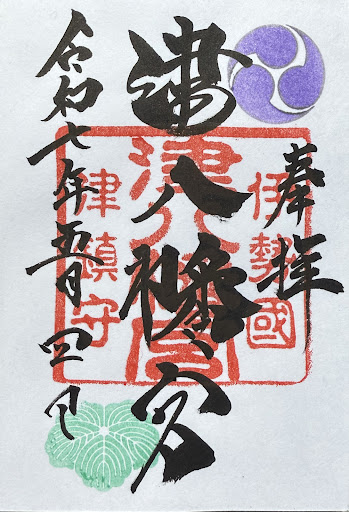 奉拝
伊勢國
津八幡宮
津八幡宮
津鎮守
令和七年五月四日